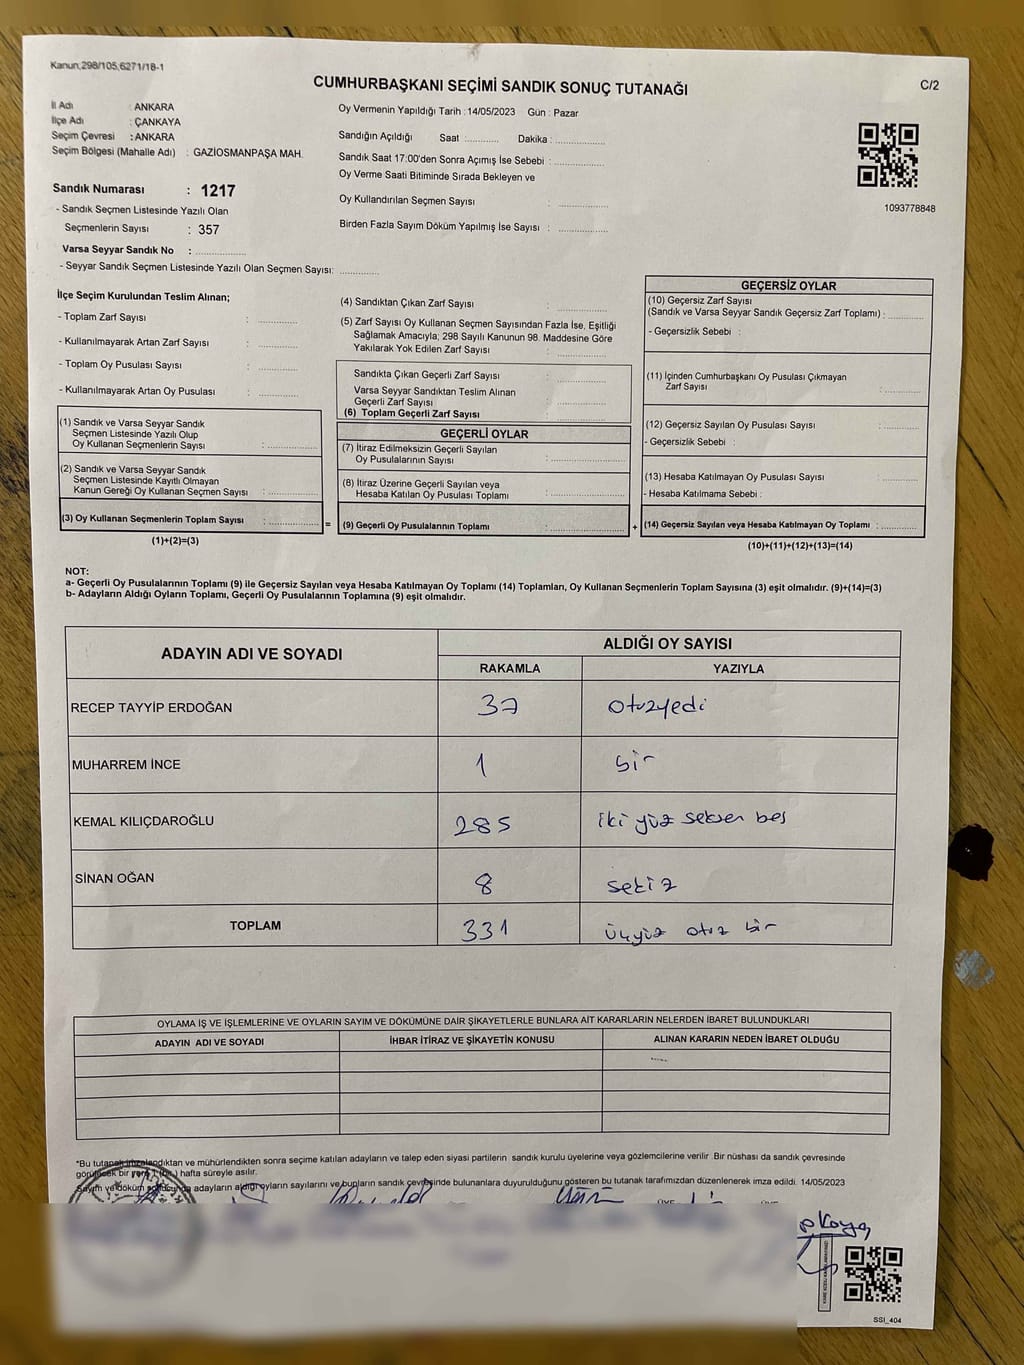 Kanun,298/105,6271/18-1
CUMHURBAŞKANI SEÇİMİ SANDIK SONUÇ TUTANAĞI
C/2
İl Adı : ANKARA
İlçe Adı : ÇANKAYA
Seçim Çevresi : ANKARA
Seçim Bölgesi (Mahalle Adı) : GAZİOSMANPAŞA MAH.
Oy Vermenin Yapıldığı Tarih : 14/05/2023 Gün : Pazar
Sandığın Açıldığı Saat :............ Dakika :................
Sandık Saat 17:00'den Sonra Açımış İse Sebebi : ................
Oy Verme Saati Bitiminde Sırada Bekleyen ve
Oy Kullandırılan Seçmen Sayısı : ................
Birden Fazla Sayım Döküm Yapılmış İse Sayısı : ................
1093778848
Sandık Numarası : 1217
- Sandık Seçmen Listesinde Yazılı Olan
Seçmenlerin Sayısı : 357
Varsa Seyyar Sandık No : ................
- Seyyar Sandık Seçmen Listesinde Yazılı Olan Seçmen Sayısı: .............
İlçe Seçim Kurulundan Teslim Alınan;
- Toplam Zarf Sayısı : ............
- Kullanılmayarak Artan Zarf Sayısı : ............
- Toplam Oy Pusulası Sayısı : ............
- Kullanılmayarak Artan Oy Pusulası : ............
(1) Sandık ve Varsa Seyyar Sandık
Seçmen Listesinde Yazılı Olup
Oy Kullanan Seçmenlerin Sayısı : ................
(2) Sandık ve Varsa Seyyar Sandık
Seçmen Listesinde Kayıtlı Olmayan
Kanun Gereği Oy Kullanan Seçmen Sayısı : ................
(3) Oy Kullanan Seçmenlerin Toplam Sayısı : ................
(1)+(2)=(3)
=
(4) Sandıktan Çıkan Zarf Sayısı : ................
(5) Zarf Sayısı Oy Kullanan Seçmen Sayısından Fazla İse, Eşitliği
Sağlamak Amacıyla; 298 Sayılı Kanunun 98. Maddesine Göre
Yakılarak Yok Edilen Zarf Sayısı : ................
Sandıkta Çıkan Geçerli Zarf Sayısı : ................
Varsa Seyyar Sandıktan Teslim Alınan
Geçerli Zarf Sayısı : ................
(6) Toplam Geçerli Zarf Sayısı : ................
GEÇERLİ OYLAR
(7) İtiraz Edilmeksizin Geçerli Sayılan
Oy Pusulalarının Sayısı : ................
(8) İtiraz Üzerine Geçerli Sayılan veya
Hesaba Katılan Oy Pusulası Toplamı : ................
(9) Geçerli Oy Pusulalarının Toplamı : ................
+
GEÇERSİZ OYLAR
(10) Geçersiz Zarf Sayısı
(Sandık ve Varsa Seyyar Sandık Geçersiz Zarf Toplamı) : ............
- Geçersizlik Sebebi :
(11) İçinden Cumhurbaşkanı Oy Pusulası Çıkmayan
Zarf Sayısı : ............
(12) Geçersiz Sayılan Oy Pusulası Sayısı : ............
- Geçersizlik Sebebi :
(13) Hesaba Katılmayan Oy Pusulası Sayısı : ............
- Hesaba Katılmama Sebebi :
(14) Geçersiz Sayılan veya Hesaba Katılmayan Oy Toplamı : ............
(10)+(11)+(12)+(13)=(14)
NOT:
a- Geçerli Oy Pusulalarının Toplamı (9) ile Geçersiz Sayılan veya Hesaba Katılmayan Oy Toplamı (14) Toplamları, Oy Kullanan Seçmenlerin Toplam Sayısına (3) eşit olmalıdır. (9)+(14)=(3)
b- Adayların Aldığı Oyların Toplamı, Geçerli Oy Pusulalarının Toplamına (9) eşit olmalıdır.
ADAYIN ADI VE SOYADI ALDIĞI OY SAYISI
RAKAMLA YAZIYLA
RECEP TAYYİP ERDOĞAN 37 otuzyedi
MUHARREM İNCE 1 bir
KEMAL KILIÇDAROĞLU 285 iki yüz seksen beş
SİNAN OĞAN 8 sekiz
TOPLAM 331 üçyüz otuz bir
OYLAMA İŞ VE İŞLEMLERİNE VE OYLARIN SAYIM VE DÖKÜMÜNE DAİR ŞİKAYETLERLE BUNLARA AİT KARARLARIN NELERDEN İBARET BULUNDUKLARI
ADAYIN ADI VE SOYADI İHBAR İTİRAZ VE ŞİKAYETİN KONUSU ALINAN KARARIN NEDEN İBARET OLDUĞU
*Bu tutanak imzalandıktan ve mühürlendikten sonra seçime katılan adayların ve talep eden siyasi partilerin sandık kurulu üyelerine veya gözlemcilerine verilir. Bir nüshası da sandık çevresinde
görülecek bir yere 1 (bir) hafta süreyle asılır.
Sayım ve döküm sonucunda adayların aldığı oyların sayılarını ve bunların sandık çevresinde bulunanlara duyurulduğunu gösteren bu tutanak tarafımızdan düzenlenerek imza edildi. 14/05/2023
SSI_404